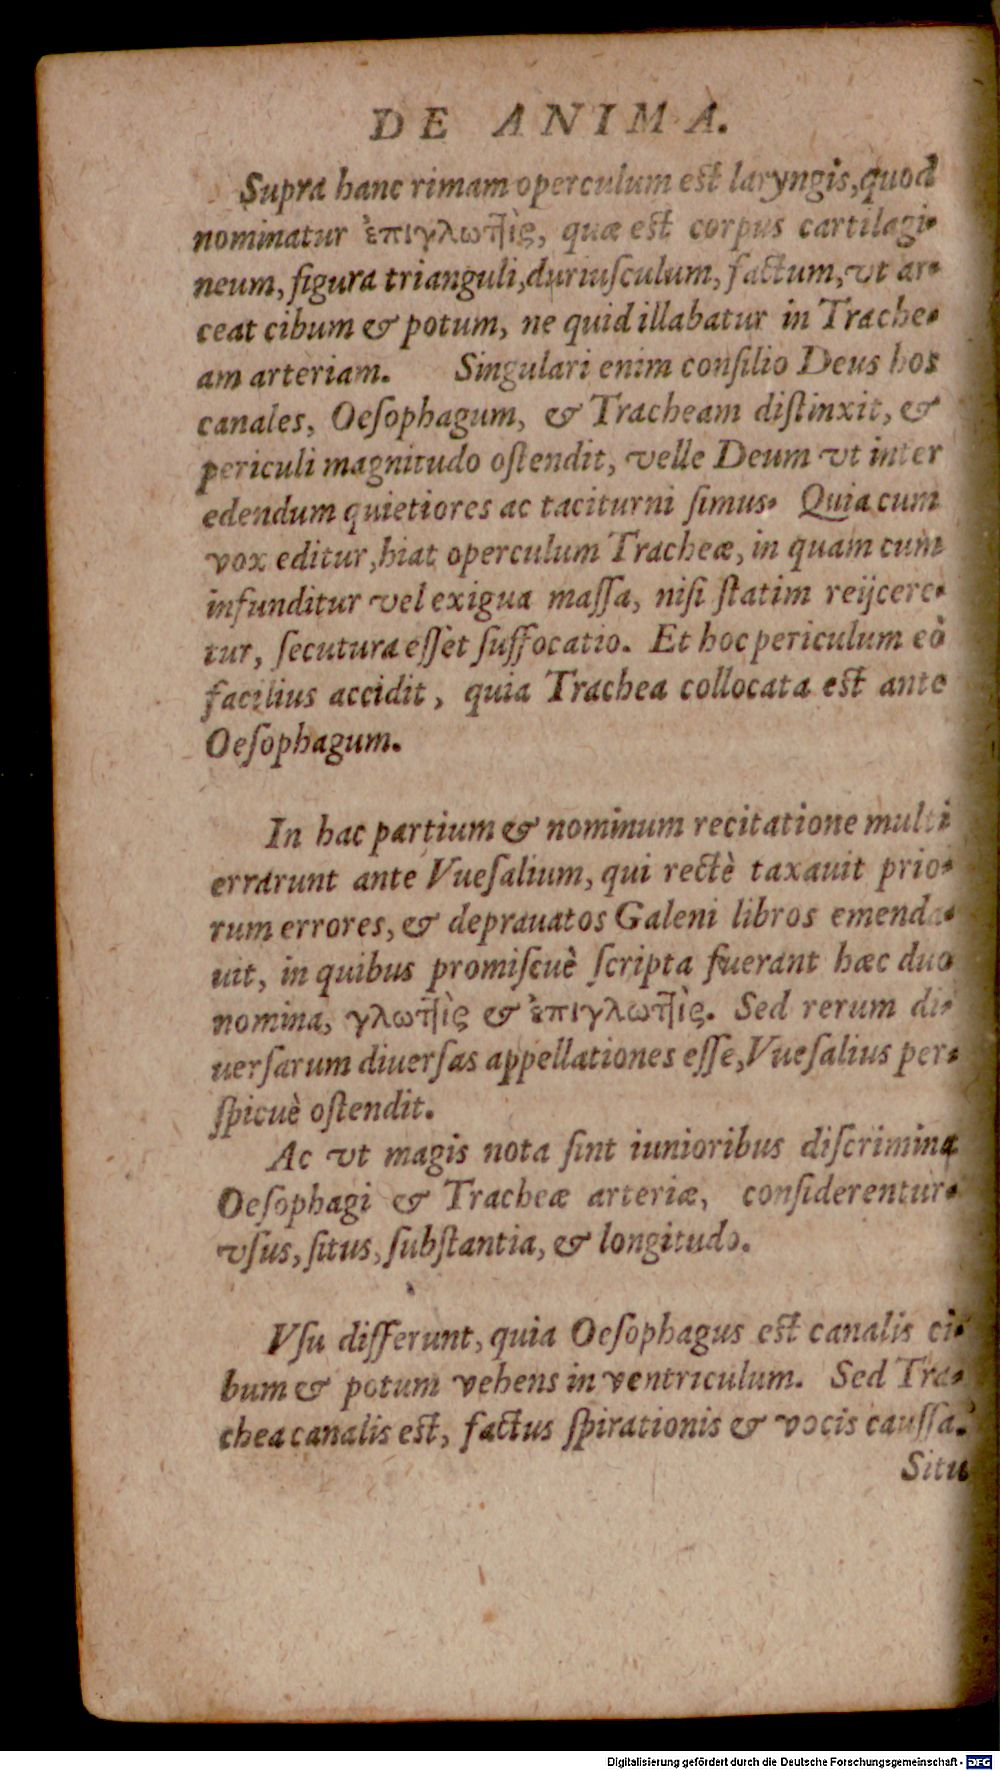 DE ANIMA.
Supra hanc rimam operculum est laryngis, quod
nominatur ἐπιγλωττὶς, quæ est corpus cartilagi-
neum, figura trianguli, duriuſculum, factum, vt ar-
ceat cibum & potum, ne quid illabatur in Trache-
am arteriam. Singulari enim conſilio Deus hos
canales, Oeſophagum, & Tracheam diſtinxit, &
periculi magnitudo oſtendit, velle Deum vt inter
edendum quietiores ac taciturni ſimus. Quia cum
vox editur, hiat operculum Tracheæ, in quam cum
infunditur vel exigua maſſa, niſi ſtatim reijcere-
tur, ſecutura eſſet ſuffocatio. Et hoc periculum eò
facilius accidit, quia Trachea collocata est ante
Oeſophagum.
In hac partium & nominum recitatione multi
errarunt ante Vueſalium, qui rectè taxauit prio-
rum errores, & deprauatos Galeni libros emenda-
uit, in quibus promiſcuè ſcripta fuerant hæc duo
nomina, γλωττὶς & ἐπιγλωττὶς. Sed rerum di-
uerſarum diuerſas appellationes eſſe, Vueſalius per-
ſpicuè oſtendit.
Ac vt magis nota ſint iunioribus diſcrimina
Oeſophagi & Tracheæ arteriæ, conſiderentur
vſus, ſitus, ſubſtantia, & longitudo.
Vſu differunt, quia Oeſophagus est canalis ci-
bum & potum vehens in ventriculum. Sed Tra-
chea canalis est, factus ſpirationis & vocis cauſſa.
Situ
Digitalisierung gefördert durch die Deutsche Forschungsgemeinschaft - DFG